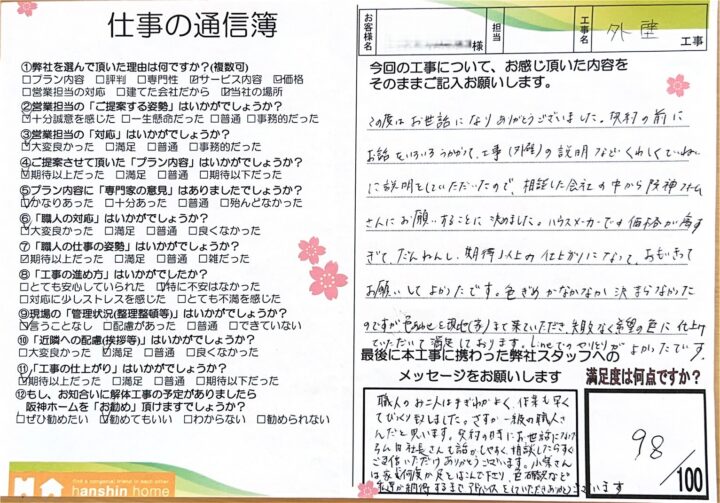 仕事の通信簿
①弊社を選んで頂いた理由は何ですか?(複数可)
□プラン内容 □評判 □専門性 ☑サービス内容 ☑価格
□営業担当の対応 □建てた会社だから ☑当社の場所
②営業担当の「ご提案する姿勢」はいかがでしょうか?
☑十分誠意を感じた □一生懸命だった □普通 □事務的だった
③営業担当の「対応」はいかがでしょうか?
☑大変良かった □満足 □普通 □事務的だった
④ご提案させて頂いた「プラン内容」はいかがでしょうか?
☑期待以上だった □満足 □普通 □期待以下だった
⑤プラン内容に「専門家の意見」はありましたでしょうか?
☑かなりあった □十分あった □普通 □殆んどなかった
⑥「職人の対応」はいかがでしょうか?
☑大変良かった □満足 □普通 □良くなかった
⑦「職人の仕事の姿勢」はいかがでしょうか?
☑期待以上だった □満足 □普通 □雑だった
⑧「工事の進め方」はいかがでしたか?
□とても安心していられた ☑特に不安はなかった
□対応に少しストレスを感じた □とても不満を感じた
⑨現場の「管理状況(整理整頓等)」はいかがでしょうか?
☑言うことなし □配慮があった □普通 □できていない
⑩「近隣への配慮(挨拶等)」はいかがでしょうか?
□大変良かった ☑満足 □普通 □良くなかった
⑪「工事の仕上がり」はいかがでしょうか?
☑期待以上だった □満足 □普通 □期待以下だった
⑫もし、お知合いに解体工事の予定がありましたら
阪神ホームを「お勧め」頂けますでしょうか?
□ぜひ勧めたい ☑勧めてもいい □わからない □勧められない
find a congenial friend in each other
hanshin home
お客様名 様 担当 工事名 外壁 工事
今回の工事について、お感じ頂いた内容を
そのままご記入お願いします。
この度はお世話になりありがとうございました。契約の前に
お話をいろいろうかがって、工事(外壁)の説明などくわしくていねい
に説明をしていただいたので、相談した会社の中から阪神ホーム
さんにお願いすることに決めました。ハウスメーカーですと価格が高す
ぎて、だんねんし、期待以上の仕上がりになって、おもいきって
お願いしてよかったです。色ぎめがなかなか決まらなかった
のですが色あわせを現地(家)まで来ていただき、失敗なく希望の色に仕上げ
ていただいて満足しております。Lineでのやりとりがよかったです。
最後に本工事に携わった弊社スタッフへの
メッセージをお願いします
職人のお二人は手ぎわがよく、作業も早く
てびっくり致しました。さすが一級の職人さ
んだと思います。契約の時にお世話になり
社長さんも話がしやすく相談したらすぐ
ご返信いただけありがとうございます。
さん
は家も何度か足をはこんで下さり、色確認など
私達が納得するまでアドバイスをしていただきありがとうございます
満足度は何点ですか?
98
/100